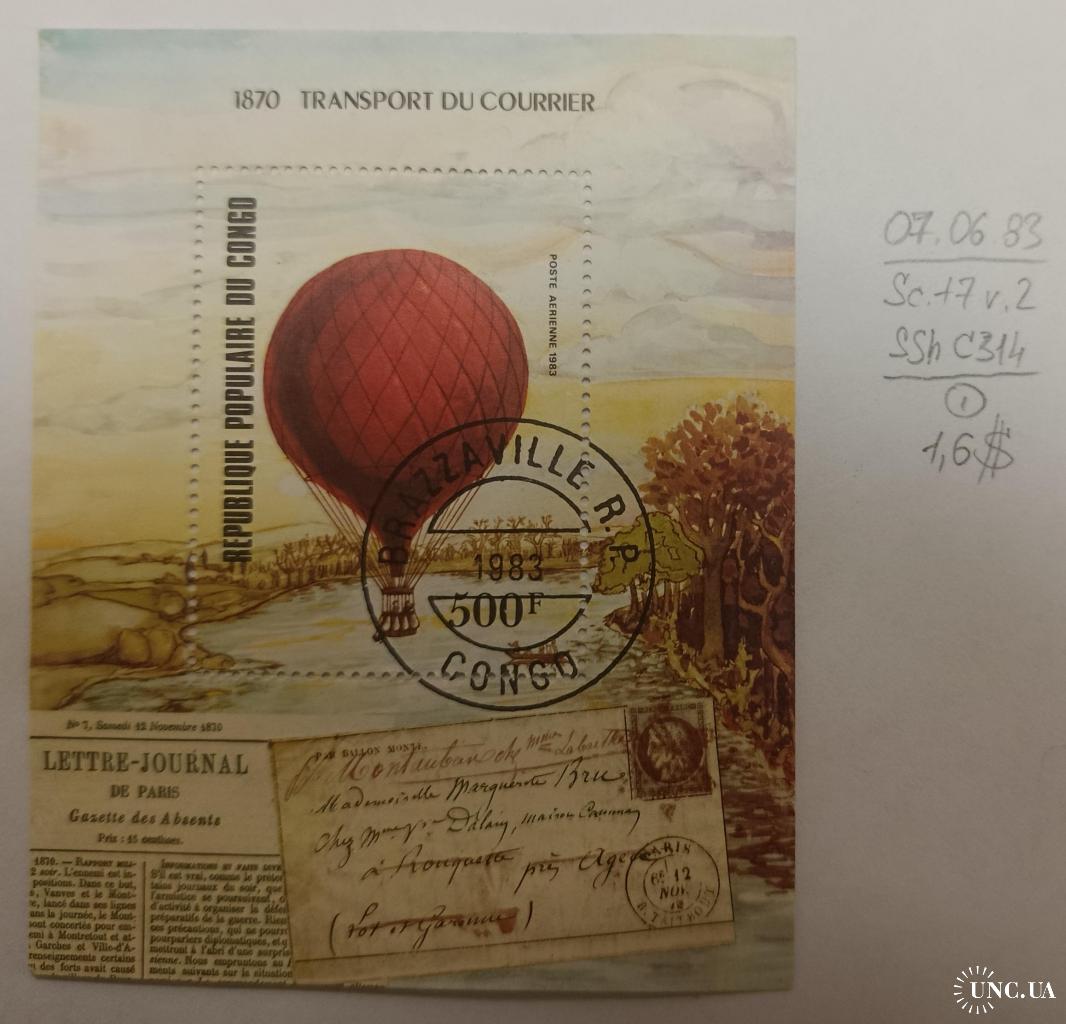 1870 TRANSPORT DU COURRIER
REPUBLIQUE POPULAIRE DU CONGO
POSTE AERIENNE 1983
BRAZZAVILLE R.P.
1983
500F
CONGO
07.06.83
Sc.+7 v.2
SSh C314
1
1,6$
No 7, Samedi 12 Novembre 1870
LETTRE-JOURNAL
DE PARIS
Gazette des Absents
Prix : 15 centimes.
1870. — RAPPORT MILI-
2 soir. L'ennemi est in-
positions. Dans ce but,
s, Vanves et le Mont-
e, lancé dans ses lignes
ans la journée, le Mont-
sont concertés pour em-
emi à Montretout et at-
Garches et Ville-d'A-
renseignements certains
des forts avait causé
INFORMATIONS ET FAITS DIVE
S'il est vrai, comme le préten
tains journaux du soir, que
l'armistice se poursuivent, o
d'activité à organiser la défen
préparatifs de la guerre. Rien
ces précautions, qui ne pourr
pourparlers diplomatiques, et q
mettront à l'abri d'une surpris
sienne. Nous empruntons au
ments suivants sur la situation
PAR BALLON MONTÉ.
Montauban chez
Mademoiselle Marguerite Bru
Chez Mme Dalain, maison
à Rouquette près Agen
(Lot et Garonne)
PARIS
12
NOV.
R. TAITBOUT
UNC.UA